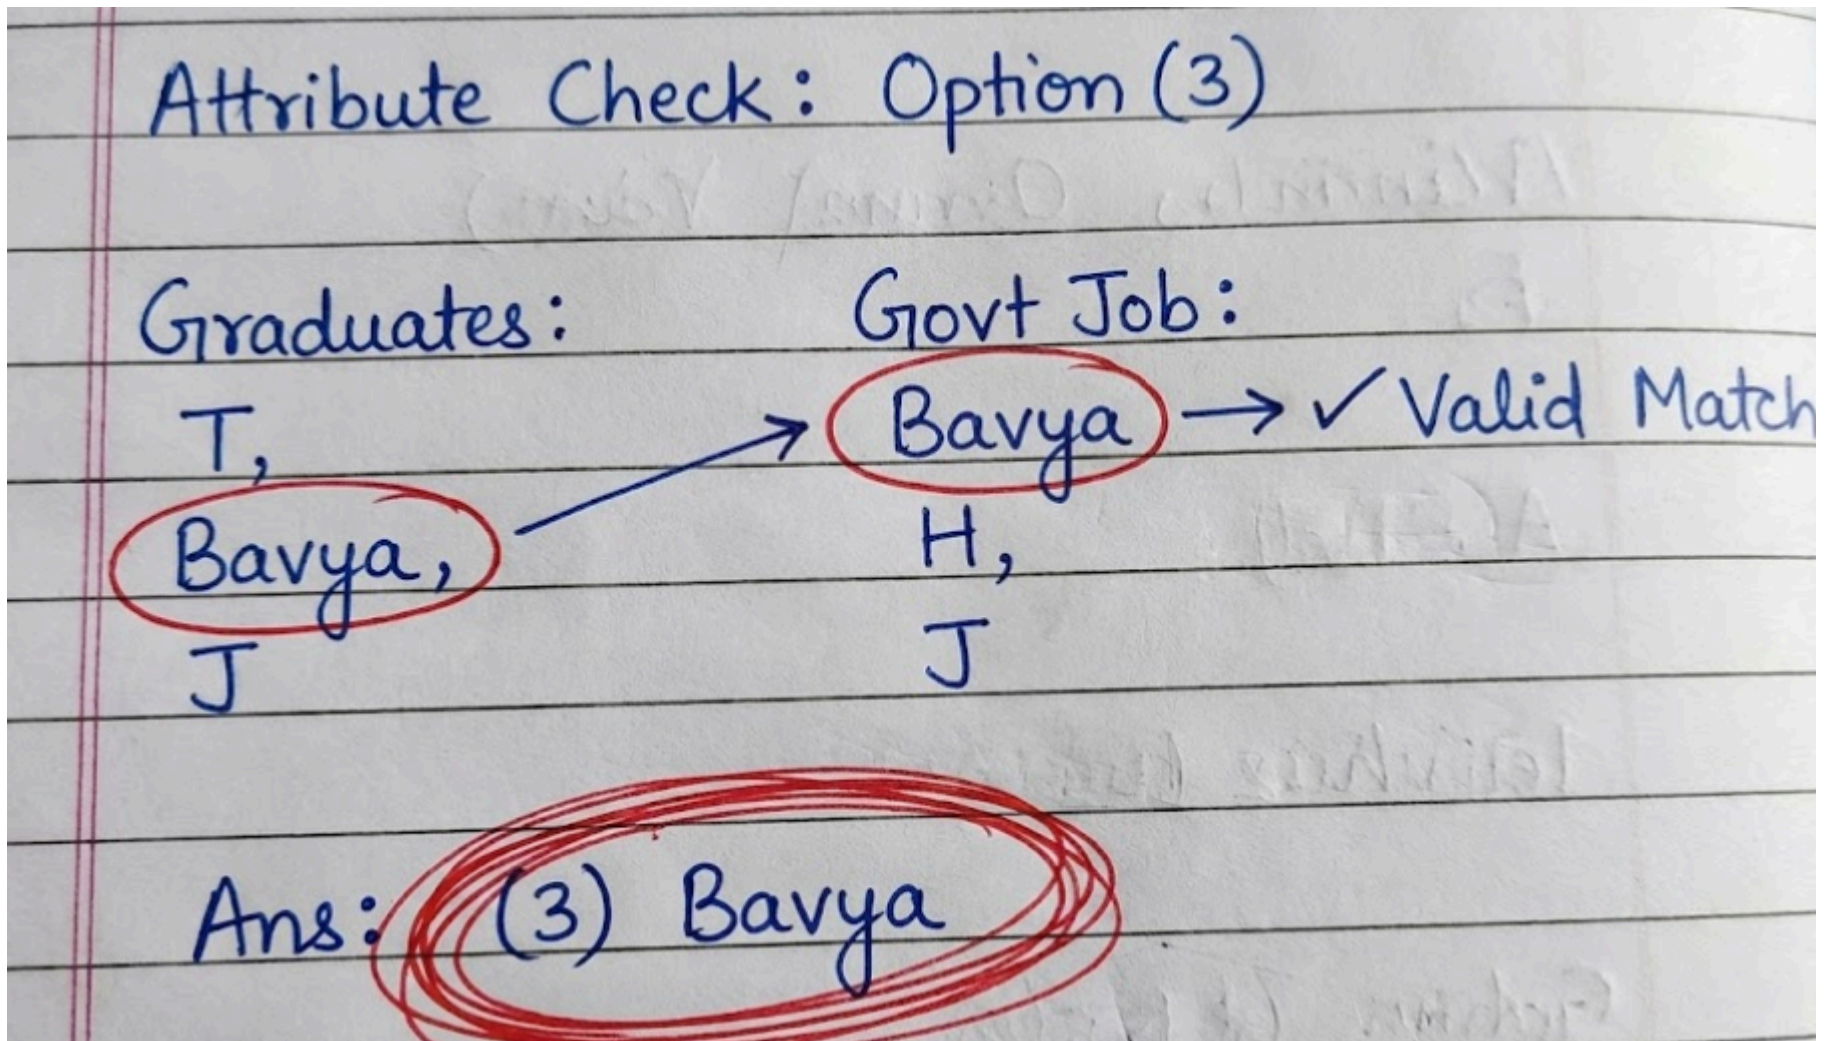 Attribute Check: Option (3)
Graduates: Govt Job:
T, Bavya → ✓ Valid Match
Bavya, H,
J J
Ans: (3) Bavya